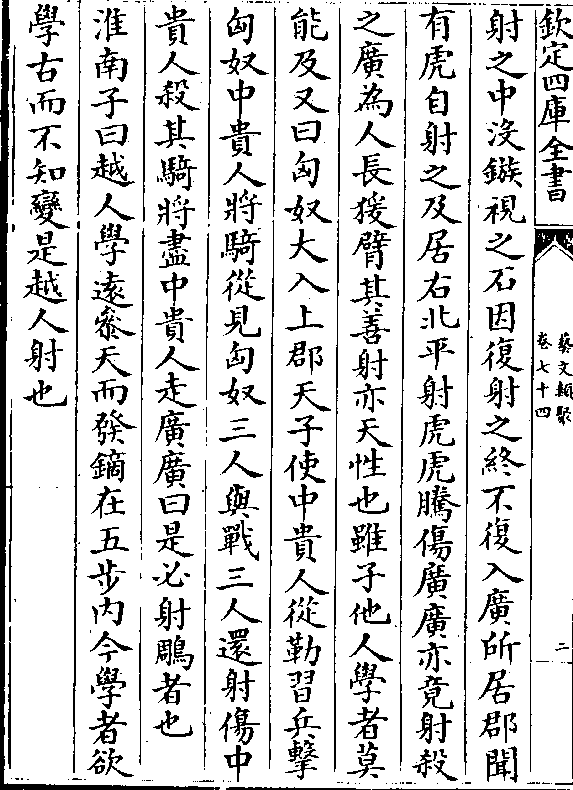 欽定四庫全書
藝文類聚
卷七十四
二
射之中沒鏃視之石因復射之終不復入廣所居郡聞
有虎自射之及居右北平射虎虎騰傷廣廣亦竟射殺
之廣為人長猨臂其善射亦天性也雖子他人學者莫
能及又曰匈奴大入上郡天子使中貴人從勒習兵擊
匈奴中貴人將騎從見匈奴三人與戰三人還射傷中
貴人殺其騎將盡中貴人走廣廣曰是必射鵰者也
淮南子曰越人學遠叅天而發鏑在五步内今學者欲
學古而不知變是越人射也